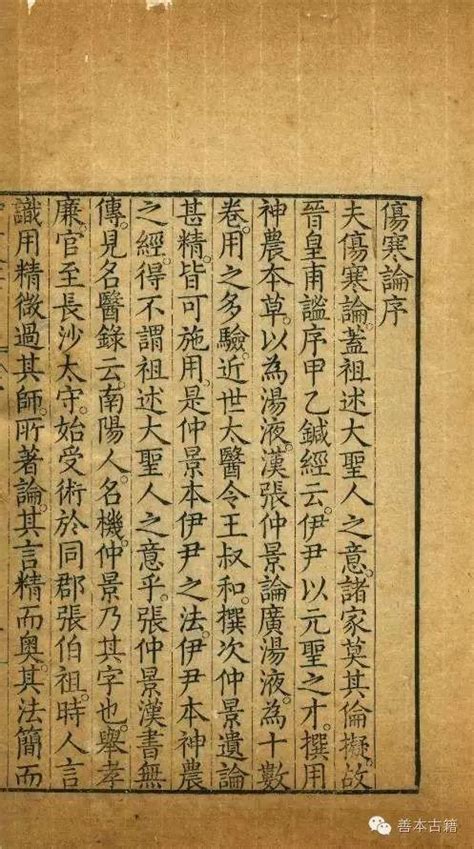 傷寒論序
夫傷寒論蓋祖述大聖人之意。諸家莫其倫擬。故
晉皇甫謐序甲乙鍼經云。伊尹以元聖之才。撰用
神農本草。以為湯液。漢張仲景論廣湯液。為十數
卷。用之多驗。近世太醫令王叔和。撰次仲景遺論
甚精。皆可施用。是仲景本伊尹之法。伊尹本神農
之經。得不謂祖述大聖人之意乎。張仲景漢書無
傳。見名醫錄云。南陽人。名機。仲景乃其字也。舉孝
廉。官至長沙太守。始受術於同郡張伯祖。時人言
識用精微過其師。所著論。其言精而奧。其法簡而
善本古籍